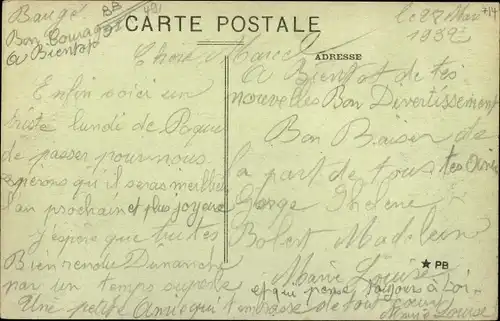 Baugé
BB
491
714
CARTE POSTALE
le 28 Mars
1932
Bon Courage
a Bientot
Chère Marcel
ADRESSE
Enfin voici un
triste lundi de Paques
de passer pour nous
esperons qu'il seras meilleur
l'an prochain et plus joyeux
j'espère que tu tes
Bien rendu Dimanche
par un temps superbe
A Bientot de tes
nouvelles Bon Divertissement
Bon Baiser de
la part de tous tes Amis
George Thelene
Bolert Madeleine
Marie Louise
PB
et qui pense toujours à toi
Une petite Amie qui t'embrasse de tout coeur
Marie Louise